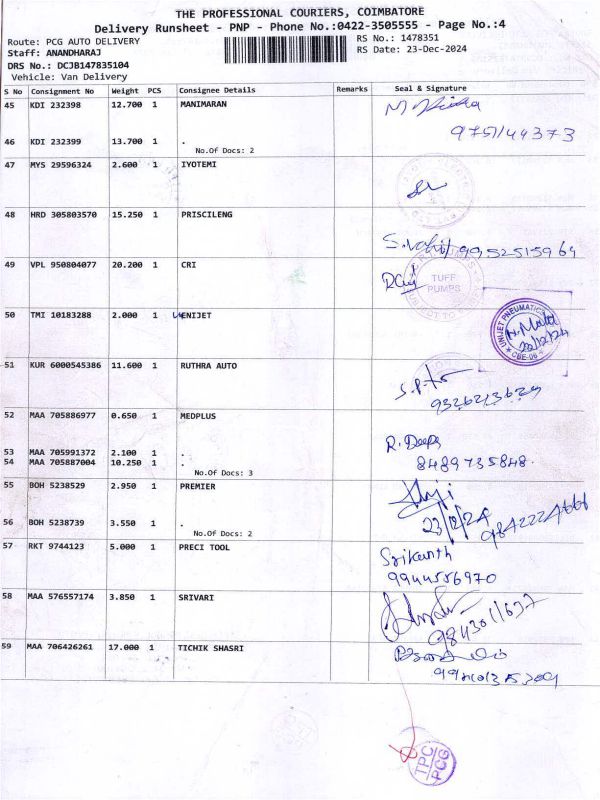 THE PROFESSIONAL COURIERS, COIMBATORE
Delivery Runsheet - PNP - Phone No.:0422-3505555 - Page No.:4
Route: PCG AUTO DELIVERY RS No.: 1478351
Staff: ANANDHARAJ RS Date: 23-Dec-2024
DRS No.: DCJB147835104
Vehicle: Van Delivery
S No Consignment No Weight PCS Consignee Details Remarks Seal & Signature
45 KDI 232398 12.700 1 MANIMARAN
46 KDI 232399 13.700 1 .
No.Of Docs: 2
47 MYS 29596324 2.600 1 IYOTEMI
48 HRD 305803570 15.250 1 PRISCILENG
9952515964
49 VPL 950804077 20.200 1 CRI
TUFF
PUMPS
50 TMI 10183288 2.000 1 ENIJET
UNIJET PNEUMATICS
CBE-06
51 KUR 6000545386 11.600 1 RUTHRA AUTO
52 MAA 705886977 0.650 1 MEDPLUS
R. Deepa
53 MAA 705991372 2.100 1 .
54 MAA 705887004 10.250 1 . 8489735848
No.Of Docs: 3
55 BOH 5238529 2.950 1 PREMIER
23/12/24
56 BOH 5238739 3.550 1 .
No.Of Docs: 2
57 RKT 9744123 5.000 1 PRECI TOOL
Srikanth
9944556970
58 MAA 576557174 3.850 1 SRIVARI
59 MAA 706426261 17.000 1 TICHIK SHASRI
TPC
PCG